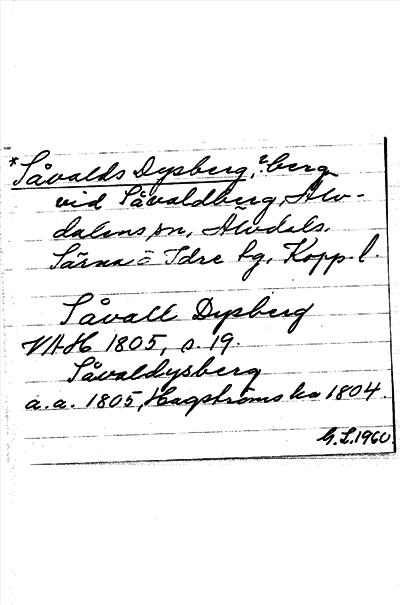 *Såvalds Dysberg, ? berg
vid Såvaldberg, Älv-
dalens sn, Älvdals,
Särna o Idre tg, Kopp. l.
Såvall Dysberg
VAH 1805, s. 19.
Såvaldysberg
a. a. 1805, Hagströms ka 1804.
G. L. 1960.